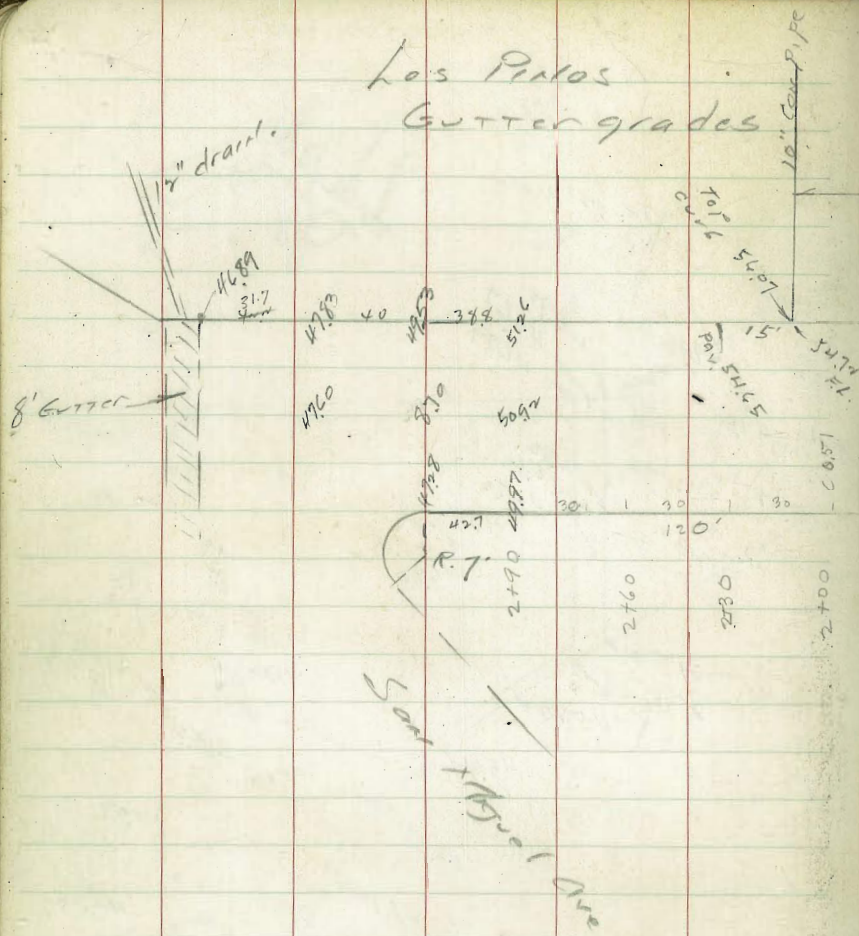 Los Pinos
Gutter grades
10" Con Pipe
12" drain.
Top
Curb
46.89
31.7
47.83
40
49.53
38.8
51.26
15'
8' Gutter
47.60
8.70
50.92
47.28
49.97
42.7
30
30
30
120'
R. 7'
2+90
2+60
2+30
2+00
San Miguel Ave